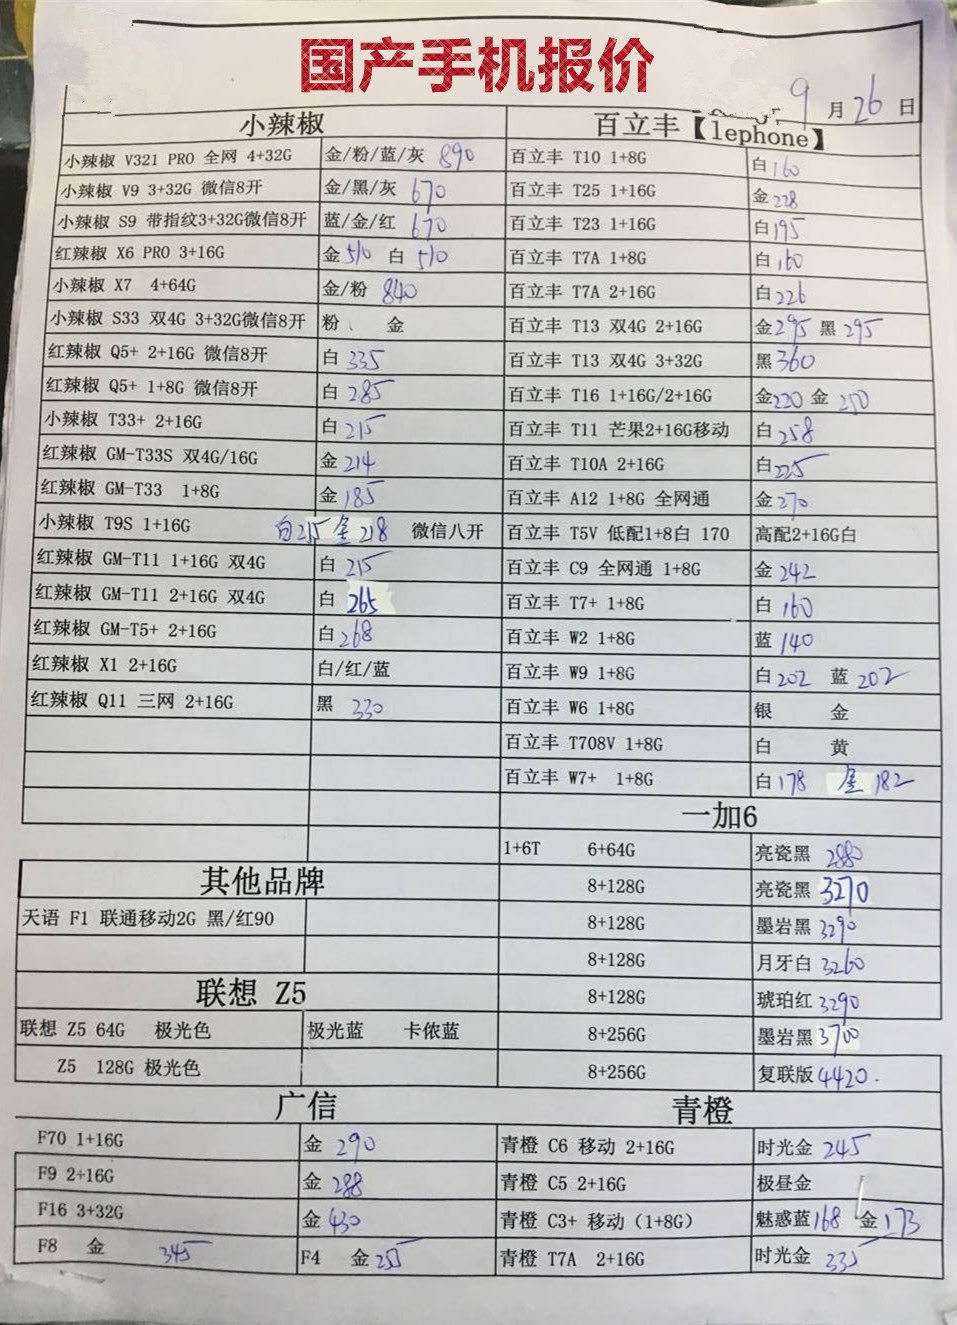 国产手机报价
9月26日
小辣椒
小辣椒 V321 PRO 全网 4+32G 金/粉/蓝/灰 890
小辣椒 V9 3+32G 微信8开 金/黑/灰 670
小辣椒 S9 带指纹3+32G微信8开 蓝/金/红 670
红辣椒 X6 PRO 3+16G 金510 白 510
小辣椒 X7 4+64G 金/粉 840
小辣椒 S33 双4G 3+32G微信8开 粉 金
红辣椒 Q5+ 2+16G 微信8开 白 335
红辣椒 Q5+ 1+8G 微信8开 白 285
小辣椒 T33+ 2+16G 白 215
红辣椒 GM-T33S 双4G/16G 金 214
红辣椒 GM-T33 1+8G 金 185
小辣椒 T9S 1+16G 白215 金 218 微信八开
红辣椒 GM-T11 1+16G 双4G 白 215
红辣椒 GM-T11 2+16G 双4G 白 265
红辣椒 GM-T5+ 2+16G 白268
红辣椒 X1 2+16G 白/红/蓝
红辣椒 Q11 三网 2+16G 黑 330
其他品牌
天语 F1 联通移动2G 黑/红90
联想 Z5
联想 Z5 64G 极光色 极光蓝 卡侬蓝
Z5 128G 极光色
广信
F70 1+16G 金 290
F9 2+16G 金 288
F16 3+32G 金 430
F8 金 345 F4 金 255
百立丰【lephone】
百立丰 T10 1+8G 白160
百立丰 T25 1+16G 金228
百立丰 T23 1+16G 白195
百立丰 T7A 1+8G 白160
百立丰 T7A 2+16G 白226
百立丰 T13 双4G 2+16G 金295 黑 295
百立丰 T13 双4G 3+32G 黑360
百立丰 T16 1+16G/2+16G 金220 金 250
百立丰 T11 芒果2+16G移动 白258
百立丰 T10A 2+16G 白225
百立丰 A12 1+8G 全网通 金270
百立丰 T5V 低配1+8白 170 高配2+16G白
百立丰 C9 全网通 1+8G 金242
百立丰 T7+ 1+8G 白 160
百立丰 W2 1+8G 蓝 140
百立丰 W9 1+8G 白202 蓝 202
百立丰 W6 1+8G 银 金
百立丰 T708V 1+8G 白 黄
百立丰 W7+ 1+8G 白178 金 182
一加6
1+6T 6+64G 亮瓷黑 2880
8+128G 亮瓷黑 3270
8+128G 墨岩黑 3290
8+128G 月牙白 3260
8+128G 琥珀红 3290
8+256G 墨岩黑 3700
8+256G 复联版 4420.
青橙
青橙 C6 移动 2+16G 时光金 245
青橙 C5 2+16G 极昼金
青橙 C3+ 移动（1+8G） 魅惑蓝168 金173
青橙 T7A 2+16G 时光金 335